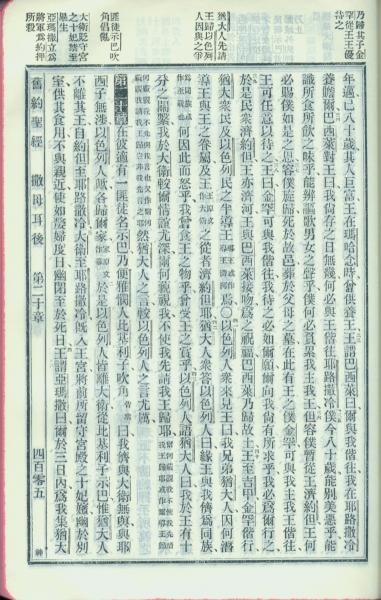 乃歸其子金
罕從王王優
待之
猶大人先請
王歸以色列
人因與之爭
匪徒示巴吹
角倡亂
大衛貶守宮
之十妃禁至
畢生
亞瑪撒立為
將軍為約押
所殺
年邁已八十歲其人巨富王在瑪哈念時曾供養王王謂巴西萊曰爾與我偕往我在耶路撒冷
養贍爾巴西萊對王曰我尚存之日無幾何必與王偕往耶路撒冷僕今八十歲能別美惡乎能
識所食所飲之味乎能辨謳歌男女之聲乎僕何必為累我主我王但容僕暫從王濟約但王何
必賜僕如是之恩容僕旋歸死於故邑葬於父母之墓在此有王之僕金罕可與我主我王偕往
王可任意以待之王曰金罕可與我偕往我待之必如爾願爾向我尚有所求乎我必為爾行之
於是民眾濟約但王亦濟河王與巴西萊接吻為之祝福巴西萊乃歸故土王至吉甲金罕偕行
猶大眾民及以色列民之半導王焉○以色列人眾來見王曰我兄弟猶大人因何潛
導王與王之眷屬及王之從者濟約但耶猶大人眾答以色列人曰緣王與我儕為同族
何因此而怒乎我曾食王之物乎曾受王之賞乎以色列人語猶大人曰我於王有十
分之關繫我於大衛較爾情誼尤深爾何藐視我不使我先請我王歸耶
然猶大人之言較以色列人之言尤厲
第二十章 在彼適有一匪徒名示巴乃便雅憫人比基利子吹角曰我儕與大衛無與與耶
西子無涉以色列人歟各歸爾家於是以色列人皆離大衛從比基利子示巴惟猶大人
不離其王自約但至耶路撒冷大衛至耶路撒冷既入王宮將前所留守宮殿之十妃嬪幽於別
室供其食用不與親近使如嫠婦度日幽閉至於死日王謂亞瑪撒曰爾於三日內為我集猶大
舊約聖經 撒母耳後 第二十章 四百零五 神